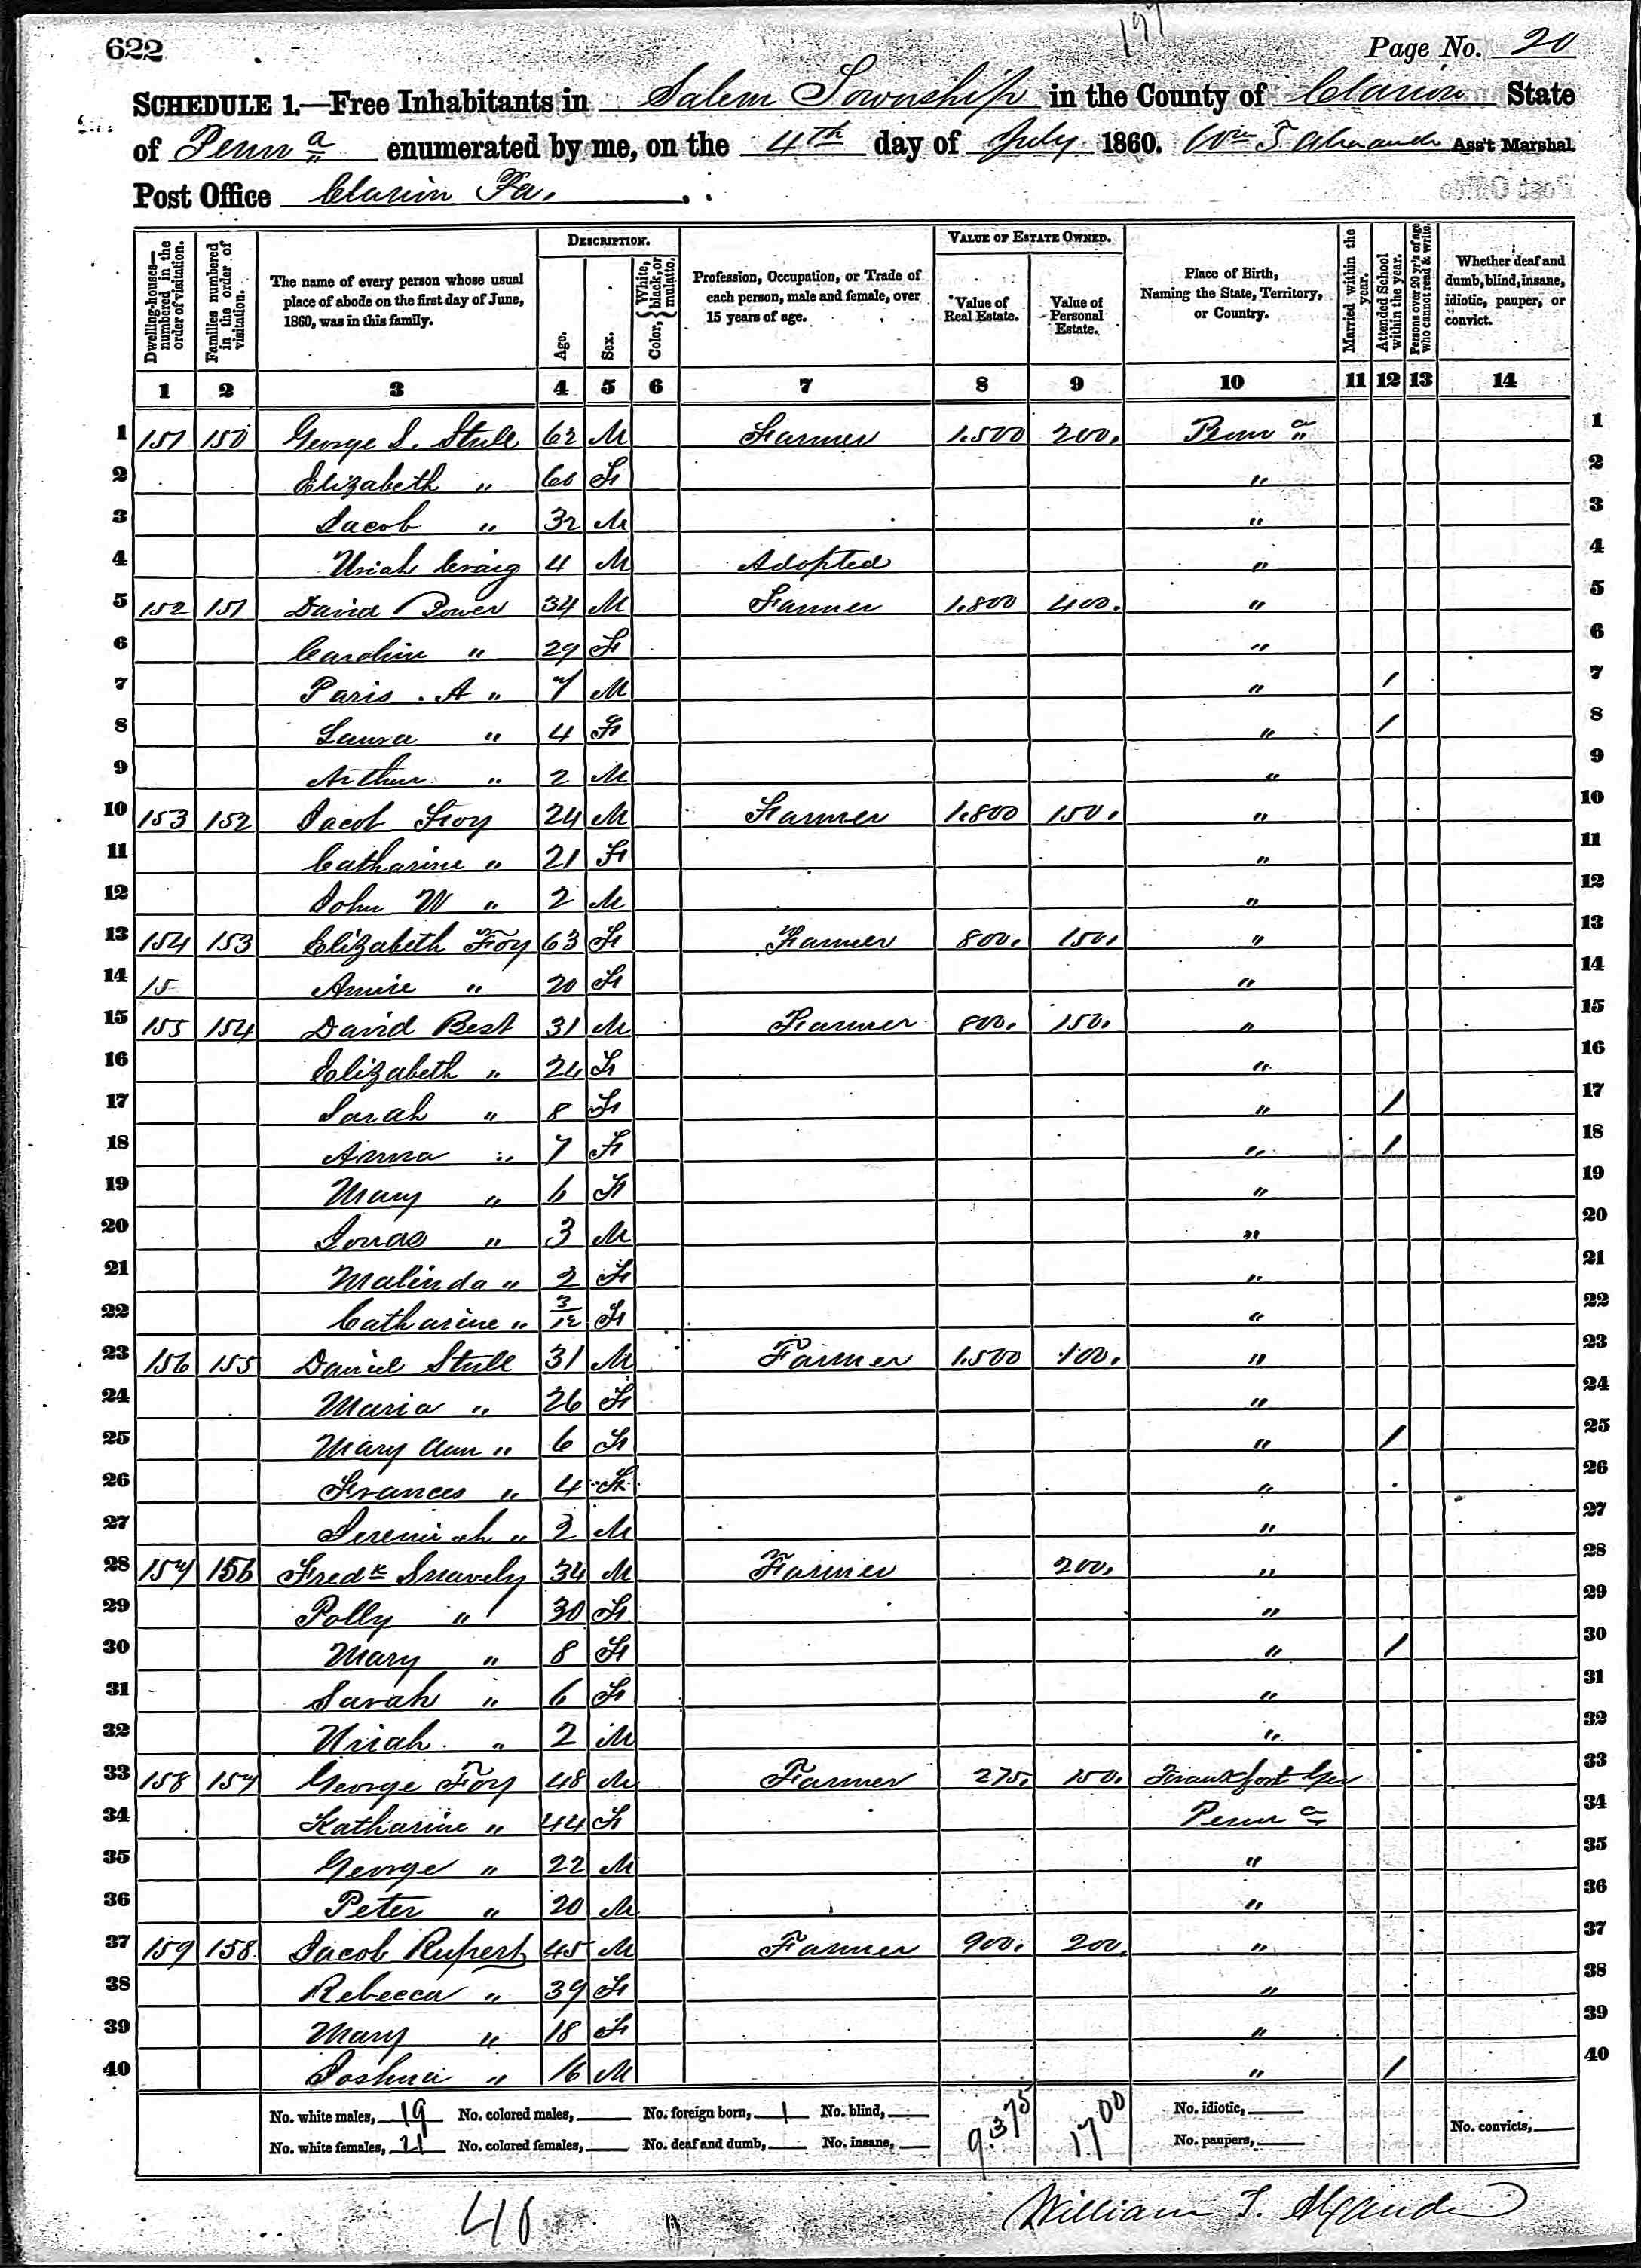 197
622 Page No. 20
SCHEDULE 1.—Free Inhabitants in Salem Township in the County of Clarion State
of Penn a enumerated by me, on the 4th day of July 1860. Wm T Ass't Marshal.
Post Office Clarion Pa.
Dwelling-houses—numbered in the order of visitation. Families numbered in the order of visitation. The name of every person whose usual place of abode on the first day of June, 1860, was in this family. DESCRIPTION. Age. Sex. Color, { White, black, or mulatto. Profession, Occupation, or Trade of each person, male and female, over 15 years of age. VALUE OF ESTATE OWNED. Value of Real Estate. Value of Personal Estate. Place of Birth, Naming the State, Territory, or Country. Married within the year. Attended School within the year. Persons over 20 yr's of age who cannot read & write. Whether deaf and dumb, blind, insane, idiotic, pauper, or convict.
1 2 3 4 5 6 7 8 9 10 11 12 13 14
1 151 150 George S. Stull 62 M Farmer 1.500 200. Penn a 1
2 Elizabeth " 60 F " 2
3 Jacob " 32 M " 3
4 Uriah Craig 4 M Adopted " 4
5 152 151 David Power 34 M Farmer 1.800 400. " 5
6 Caroline " 29 F " 6
7 Paris A " 7 M " / 7
8 Laura " 4 F " / 8
9 Arthur " 2 M " 9
10 153 152 Jacob Foy 24 M Farmer 1.800 150. " 10
11 Catharine " 21 F " 11
12 John W " 2 M " 12
13 154 153 Elizabeth Foy 63 F Farmer 800. 150. " 13
14 15 Annie " 20 F " 14
15 155 154 David Best 31 M Farmer 800. 150. " 15
16 Elizabeth " 24 F " 16
17 Sarah " 8 F " / 17
18 Anna " 7 F " / 18
19 Mary " 6 F " 19
20 Jonas " 3 M " 20
21 Malinda " 2 F " 21
22 Catharine " 3/12 F " 22
23 156 155 Daniel Stull 31 M Farmer 1.500 100. " 23
24 Maria " 26 F " 24
25 Mary Ann " 6 F " / 25
26 Frances " 4 F " 26
27 Jeremiah " 2 M " 27
28 157 156 Fredk Snavely 34 M Farmer 200. " 28
29 Polly " 30 F " 29
30 Mary " 8 F " / 30
31 Sarah " 6 F " 31
32 Uriah " 2 M " 32
33 158 157 George Foy 48 M Farmer 275. 150. Frankfort Ger 33
34 Katharine " 44 F Penn a 34
35 George " 22 M " 35
36 Peter " 20 M " 36
37 159 158 Jacob Rupert 45 M Farmer 900. 200. " 37
38 Rebecca " 39 F " 38
39 Mary " 18 F " 39
40 Joshua " 16 M " / 40
No. white males, 19 No. colored males, No. foreign born, 1 No. blind, 9.375 1700 No. idiotic,
No. white females, 21 No. colored females, No. deaf and dumb, No. insane, No. paupers, No. convicts,
40 William T.